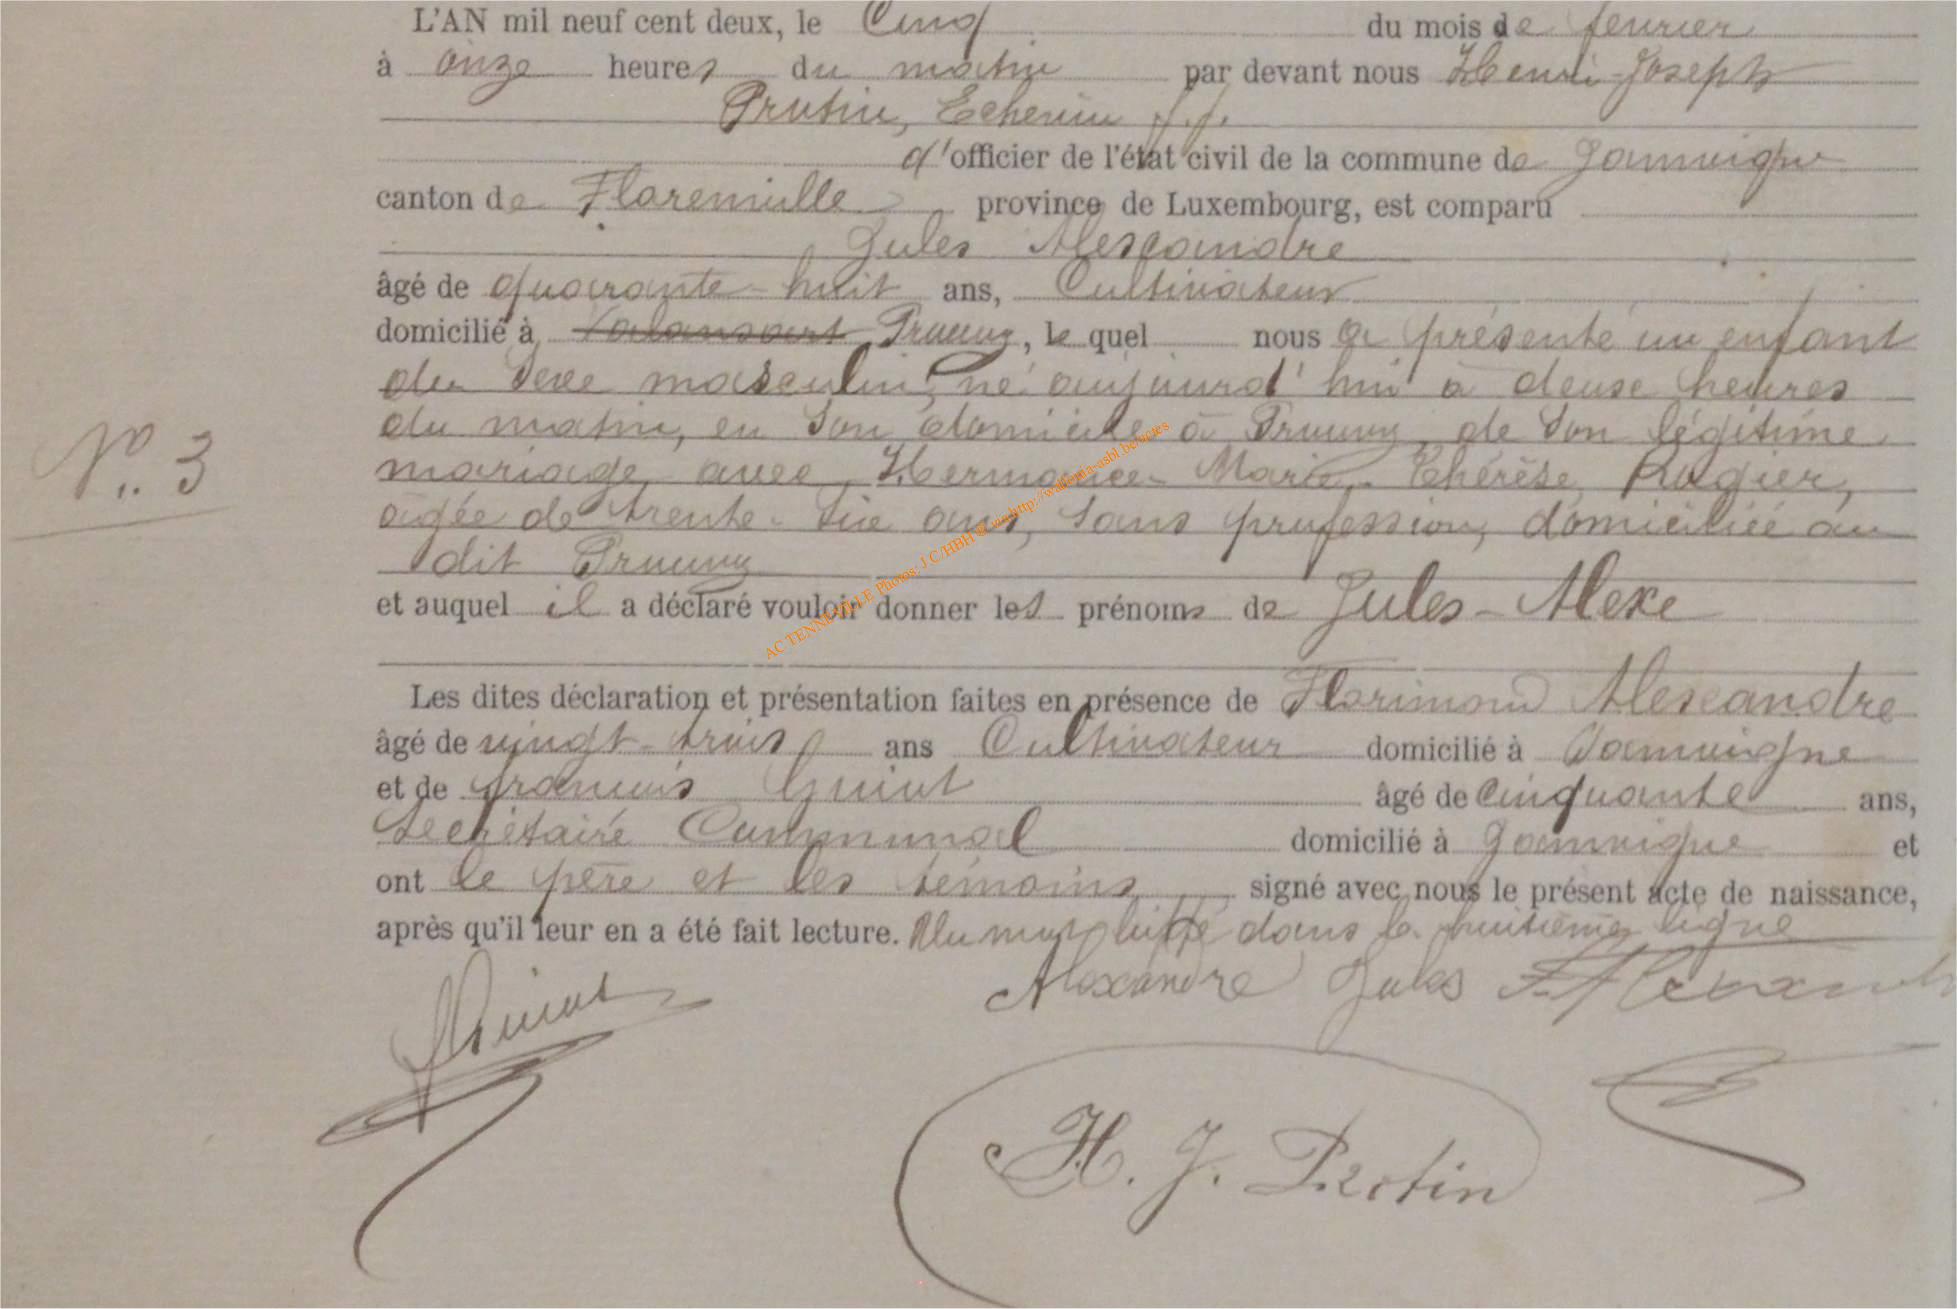 L'AN mil neuf cent deux, le Cinq du mois de fevrier
à onze heures du matin par devant nous Henri-Joseph
Protin, Echevin f.f.
d'officier de l'état civil de la commune de Jamoigne
canton de Florenville province de Luxembourg, est comparu
Jules Alexandre
âgé de quarante-huit ans, Cultivateur
domicilié à Valansart Prouvy, le quel nous a présenté un enfant
du sexe masculin, né aujourd'hui à deux heures
du matin, en son domicile à Prouvy, de son légitime
N° 3
mariage avec Hermance-Marie-Thérèse Rogier,
agée de trente-six ans, sans profession, domiciliée au
dit Prouvy
et auquel il a déclaré vouloir donner les prénoms de Jules-Alexe
AC TENNEVILLE Photos: J C/HBH @ wa http://wallonia-asbl.be/actes
Les dites déclaration et présentation faites en présence de Florimond Alexandre
âgé de vingt-trois ans Cultivateur domicilié à Jamoigne
et de françois Guiot âgé de cinquante ans,
Secrétaire Communal domicilié à Jamoigne et
ont le père et les témoins signé avec nous le présent acte de naissance,
après qu'il leur en a été fait lecture. Un mot biffé dans la huitième ligne
Alexandre Jules F. Alexandre
Guiot
H. J. Protin